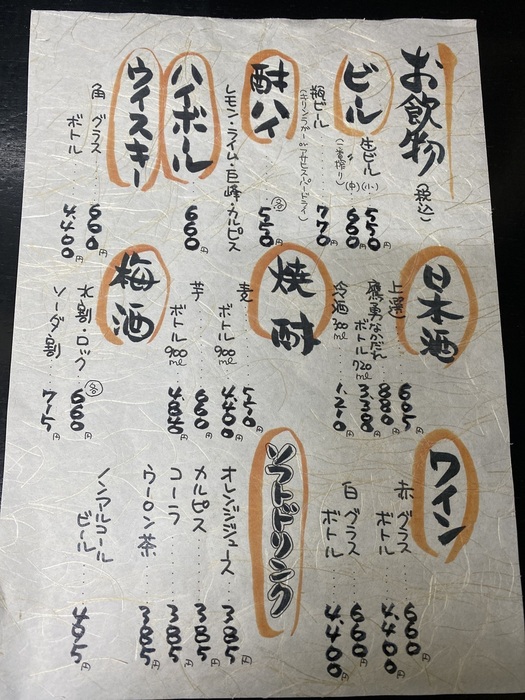 お飲物(税込)
ビール
生ビール(小) 550円
(一番搾り)(中) 660円
瓶ビール 770円
(キリンラガー or アサヒスーパードライ)
酎ハイ
レモン・ライム・巨峰・カルピス 各 550円
ハイボール 660円
ウイスキー
角 グラス 660円
ボトル 4,400円
日本酒
上選 605円
鷹勇なかだれ 880円
ボトル720ml 3,300円
冷酒300ml 1,210円
焼酎
麦 550円
ボトル900ml 4,400円
芋 660円
ボトル900ml 4,840円
梅酒
水割・ロック 各 660円
ソーダ割 715円
ワイン
赤 グラス 660円
ボトル 4,400円
白 グラス 660円
ボトル 4,400円
ソフトドリンク
オレンジジュース 385円
メルピス 385円
コーラ 385円
ウーロン茶 385円
ノンアルコールビール 495円